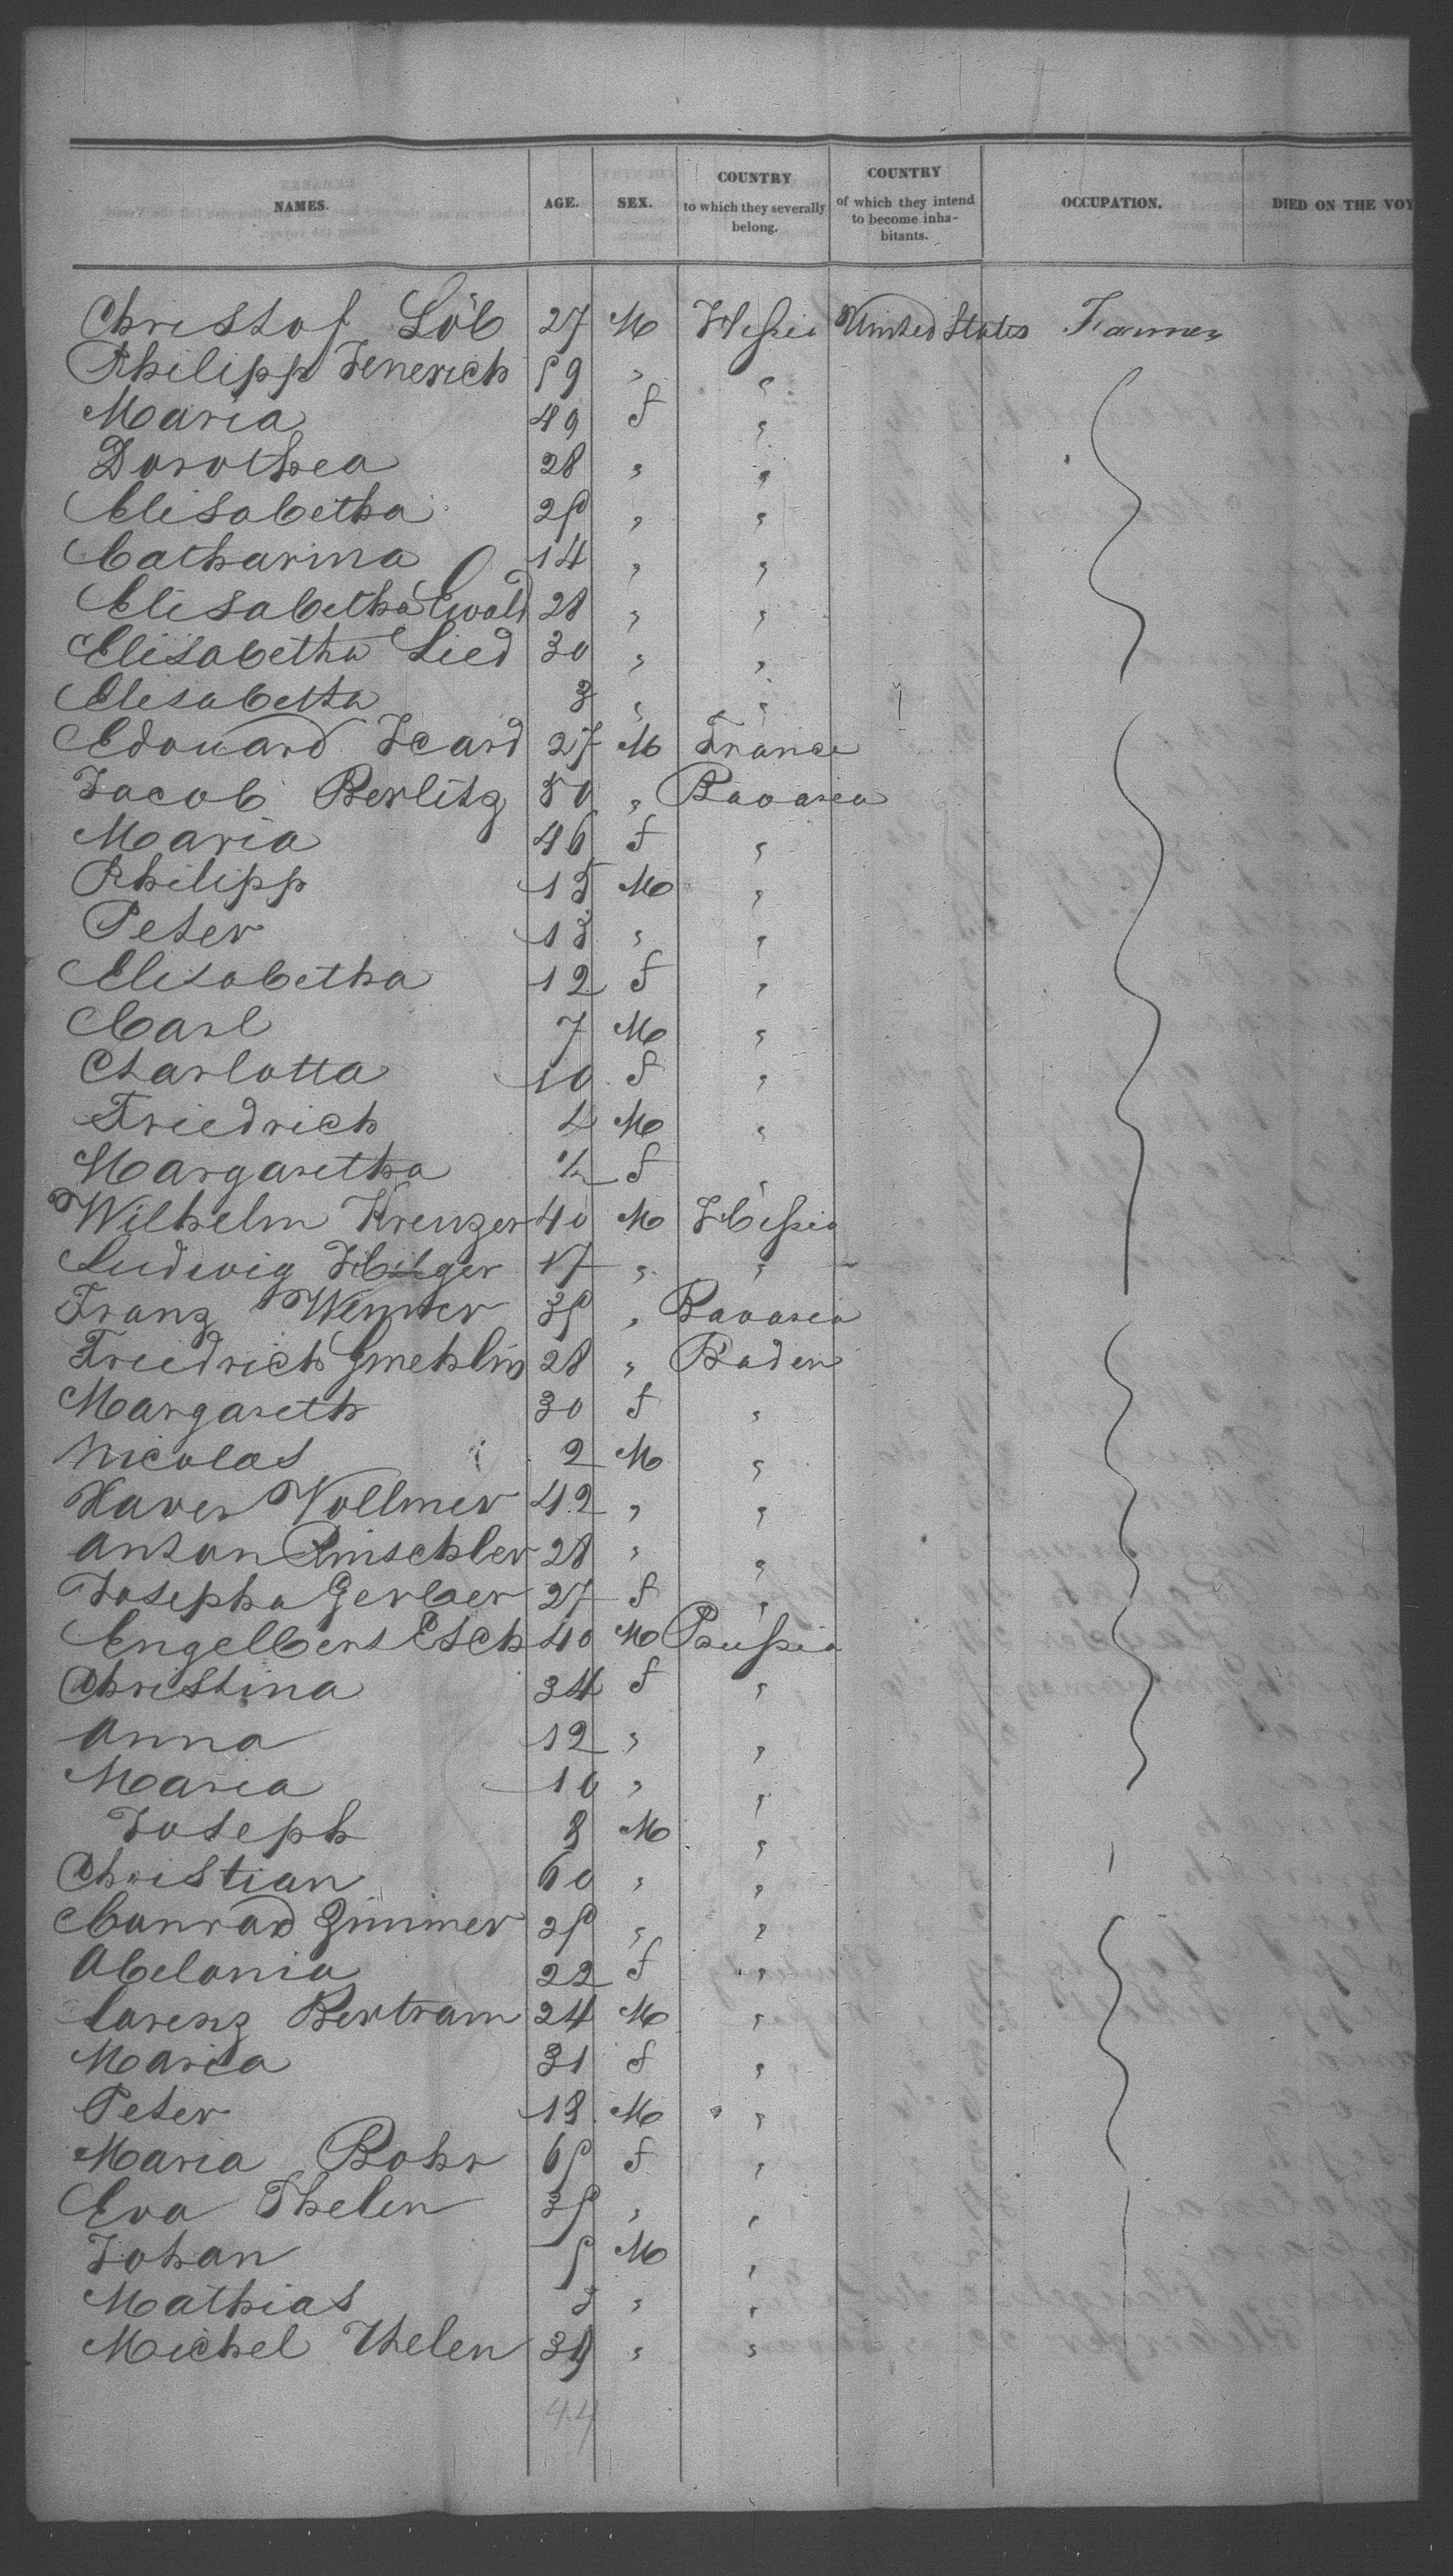 NAMES. AGE. SEX. COUNTRY to which they severally belong. COUNTRY of which they intend to become inhabitants. OCCUPATION. DIED ON THE VOY
Christof Löb 27 M Hessia United States Farmer
Philipp Fenerich 59 " "
Maria 49 f "
Dorothea 28 " "
Elisabetha 25 " "
Catharina 14 " "
Elisabetha Ewald 28 " "
Elisabetha Lied 30 " "
Elisabetta 3 " "
Edouard Icard 27 M France
Jacob Berlitz 50 " Bavaria
Maria 46 f "
Philipp 15 M "
Peter 13 " "
Elisabetha 12 f "
Carl 7 M "
Charlotta 10 f "
Friedrich 4 M "
Margaretha ½ f "
Wilhelm Kreuzer 40 M Hessia
Ludwig Hilger 17 " "
Franz Wenner 35 " Bavaria
Friedrich Gmehlin 28 " Baden
Margareth 30 f "
Nicolas 2 M "
Xaver Vollmer 42 " "
Anton 28 " "
Josepha Gerber 27 f "
Engelbert Esch 40 M Prussia
Christina 34 f "
Anna 12 " "
Maria 10 " "
Joseph 8 M "
Christian 60 " "
Conrad Zimmer 25 " "
Abelonia 22 f "
Lorenz Bertram 24 M "
Maria 31 f "
Peter 18 M "
Maria Bohr 65 f "
Eva Thelen 35 " "
Johan 5 M "
Mathias 3 " "
Michel Thelen 39 " "
44